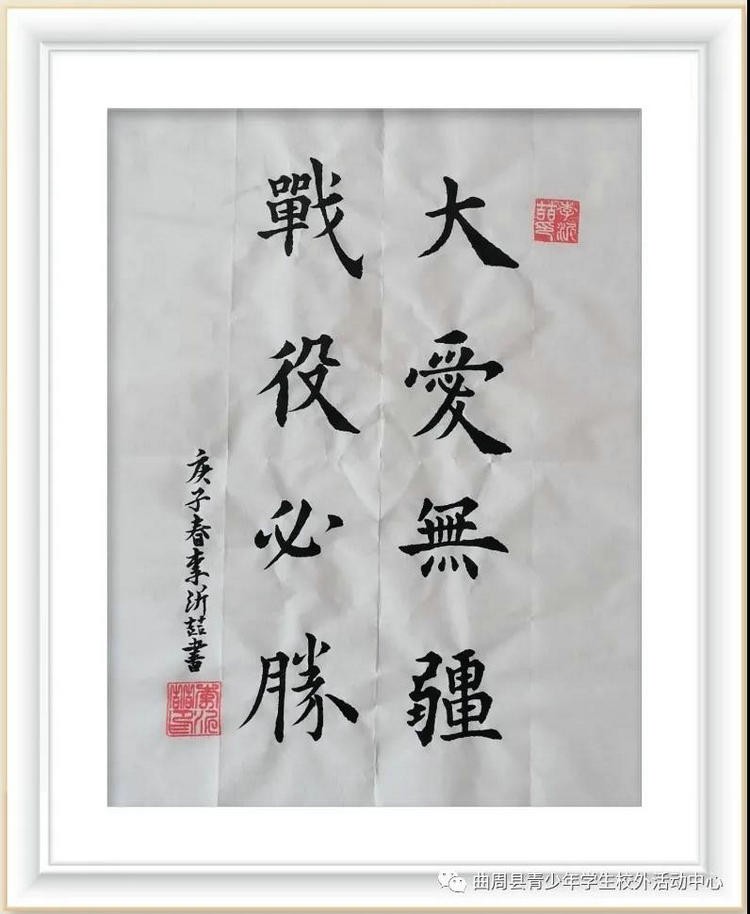 大愛無疆
戰役必勝
庚子春李沂喆書
曲周县青少年学生校外活动中心